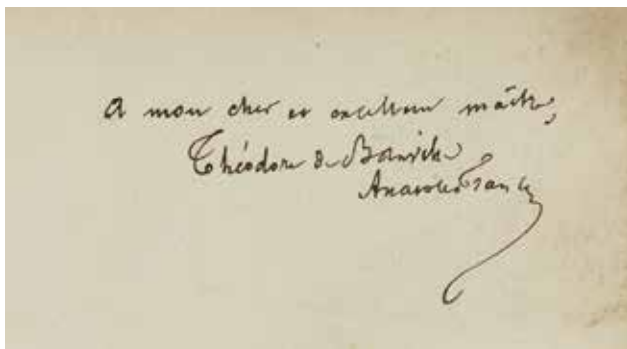 A mon cher et excellent maître,
Théodore de Banville
Anatole France